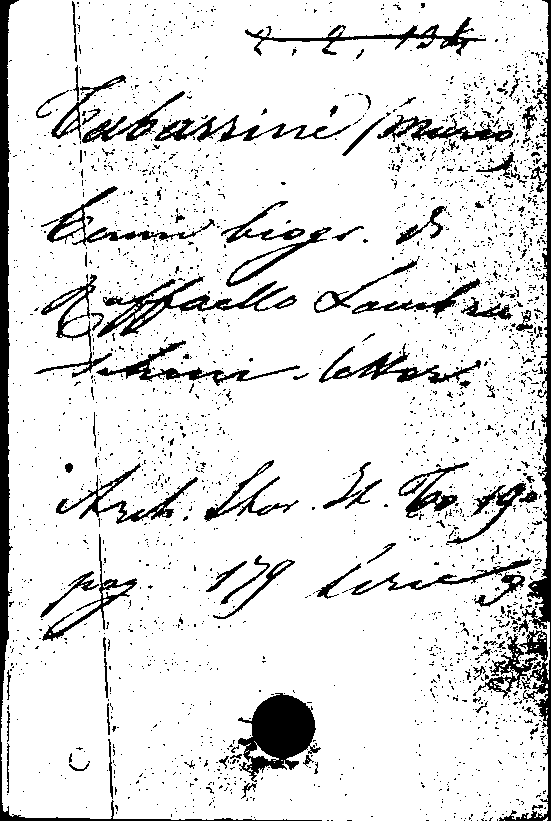 2. 2, 13
Tabarrini Marco,
Cenni biogr. di
Raffaello Lambru-
schini. letter.
Arch. Stor. It. To 19º
pag. 179 Serie 3ª